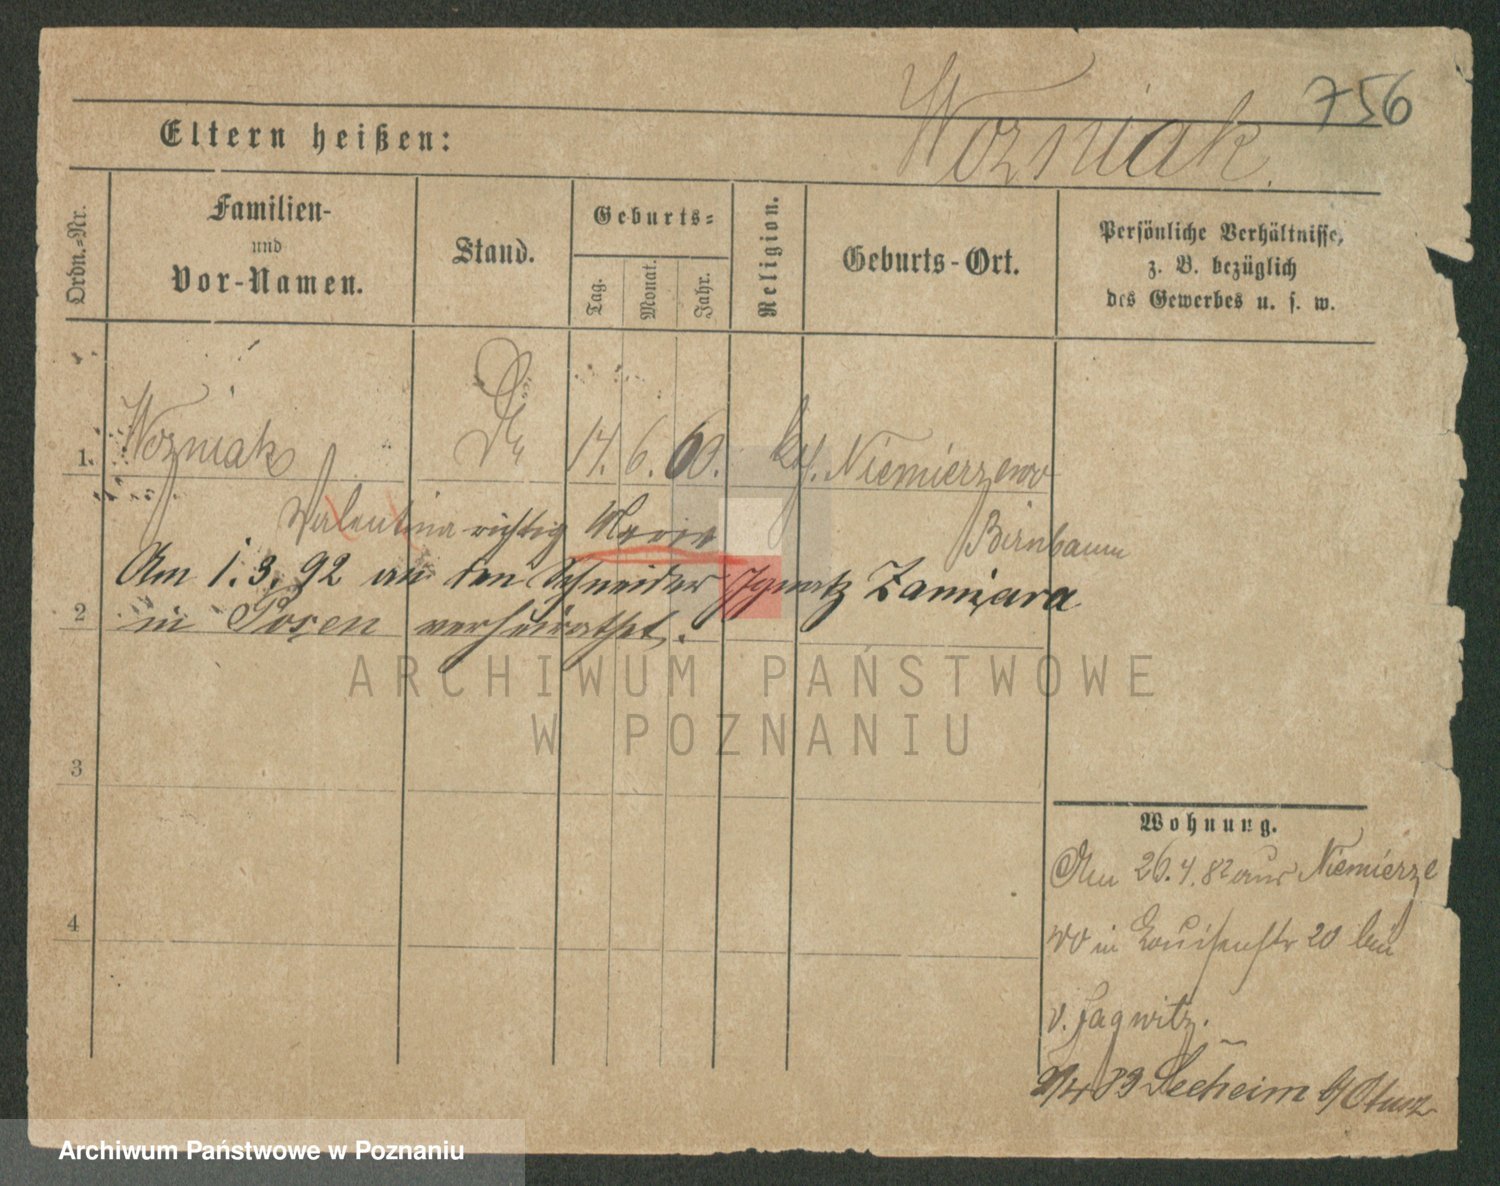 756
Wozniak.
Eltern heißen:
Ordn.-Nr.
Familien-
und
Vor-Namen.
Stand.
Geburts-
Tag.
Monat.
Jahr.
Religion.
Geburts-Ort.
Persönliche Verhältnisse,
z. B. bezüglich
des Gewerbes u. s. w.
1. Wozniak 6. 60. Niemierzewo
Valentina richtig Maria Birnbaum
Am 1.3.92 an den Schneider Ignatz Zamiara
2 in Posen verheirathet.
3
4
Wohnung.
Am 26.4.82 aus Niemierze
wo in Louisenstr 20 bei
v. Jagwitz.
89 Seeheim b/Otusz
ARCHIWUM PAŃSTWOWE
W POZNANIU
Archiwum Państwowe w Poznaniu